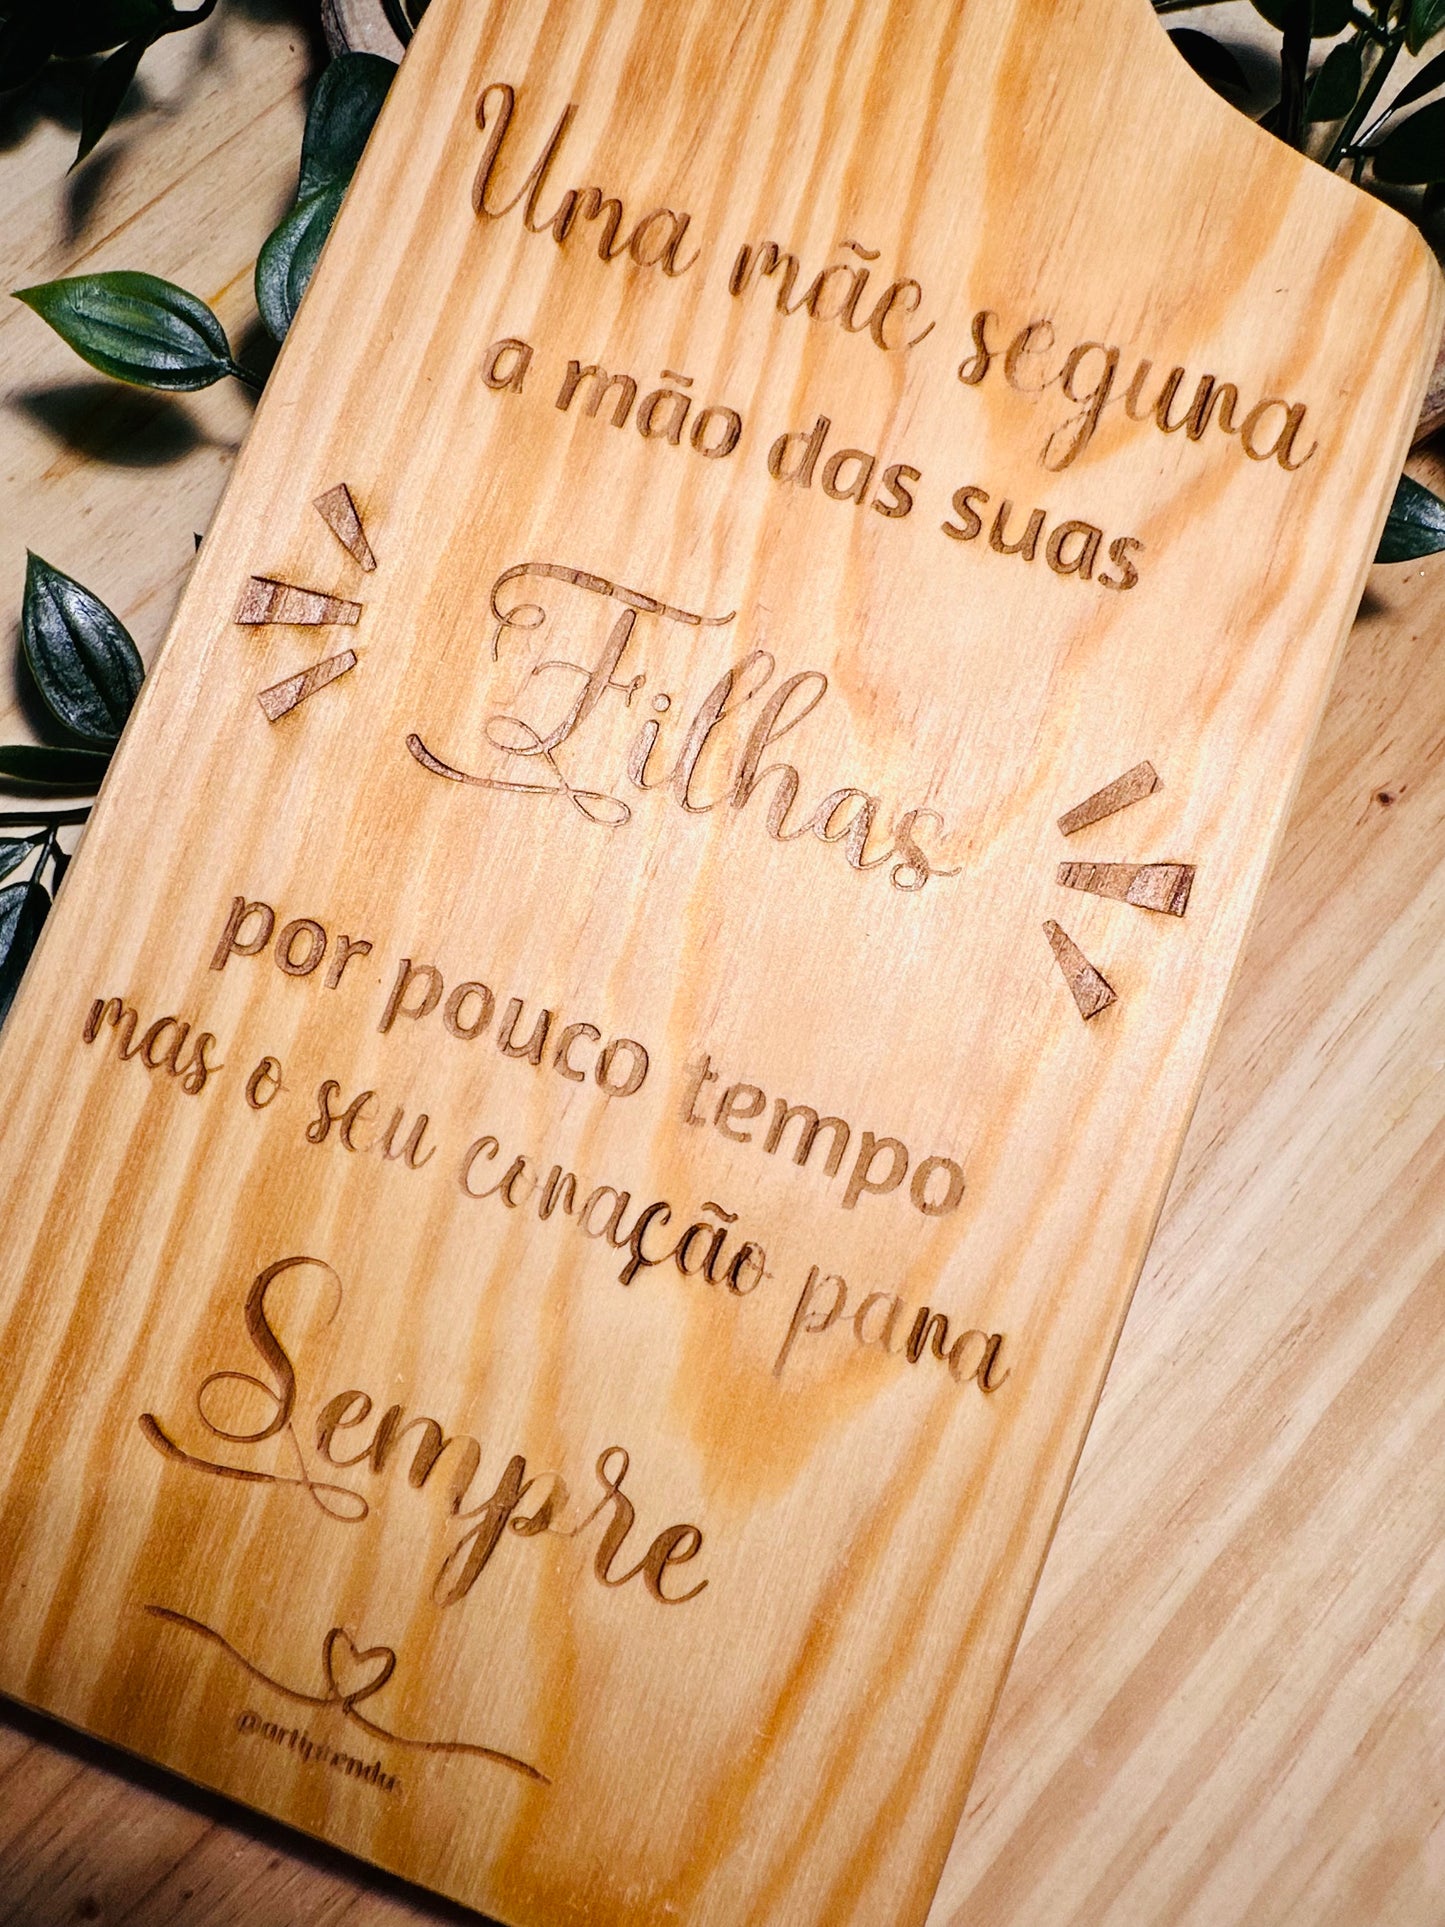 Uma mãe segura
a mão das suas
Filhas
por pouco tempo
mas o seu coração para
Sempre